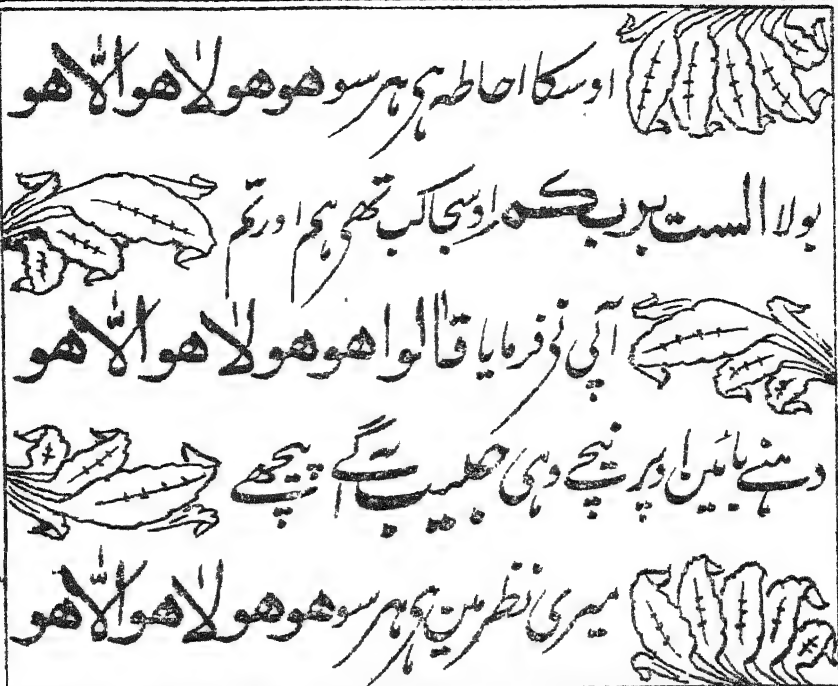 اوسکا احاطہ ہی ہر سو هو هو لا هو الا هو
بولا الست بربکم اوسجا کب تھی ہم اور تم
آپی نی فرمایا قالوا هو هو لا هو الا هو
دہنے بائین اوپر نیچے وہی حبیب آگے پیچھے
میری نظر مین ہی ہر سو هو هو لا هو الا هو